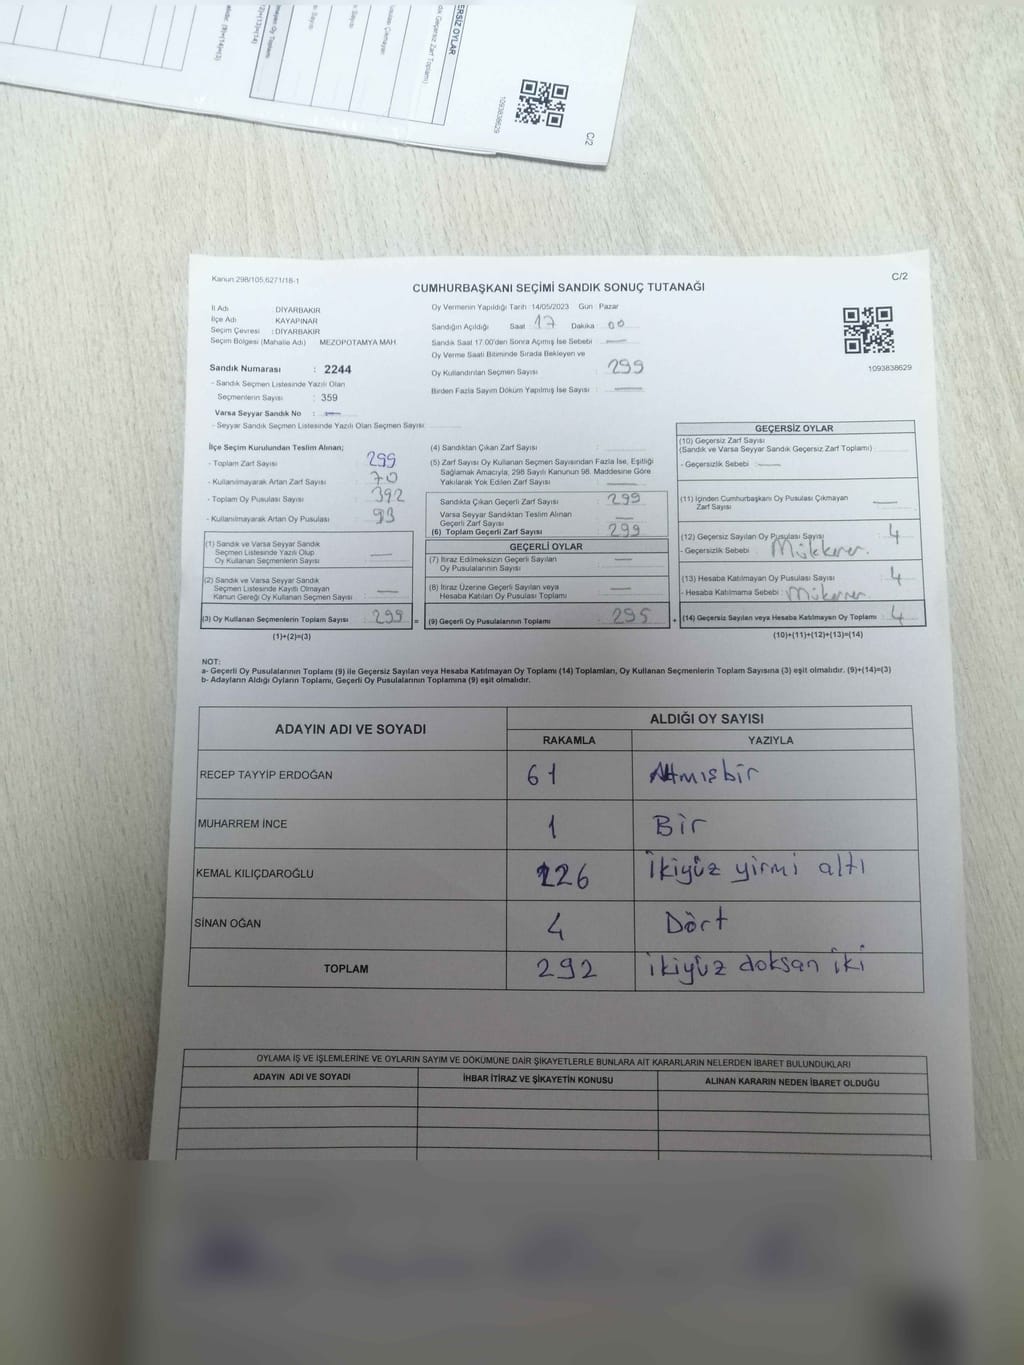 ERSİZ OYLAR
1093838629
C/2
Kanun:298/105,6271/18-1
C/2
CUMHURBAŞKANI SEÇİMİ SANDIK SONUÇ TUTANAĞI
İl Adı DİYARBAKIR
İlçe Adı KAYAPINAR
Seçim Çevresi : DİYARBAKIR
Seçim Bölgesi (Mahalle Adı) MEZOPOTAMYA MAH.
Sandık Numarası : 2244
- Sandık Seçmen Listesinde Yazılı Olan
Seçmenlerin Sayısı : 359
Varsa Seyyar Sandık No : —
- Seyyar Sandık Seçmen Listesinde Yazılı Olan Seçmen Sayısı
Oy Vermenin Yapıldığı Tarih :14/05/2023 Gün : Pazar
Sandığın Açıldığı Saat : 17 Dakika : 00
Sandık Saat 17.00'den Sonra Açımış İse Sebebi : —
Oy Verme Saati Bitiminde Sırada Bekleyen ve
Oy Kullandırılan Seçmen Sayısı : 299
Birden Fazla Sayım Döküm Yapılmış İse Sayısı : —
1093838629
İlçe Seçim Kurulundan Teslim Alınan;
- Toplam Zarf Sayısı : 299
- Kullanılmayarak Artan Zarf Sayısı : 70
- Toplam Oy Pusulası Sayısı : 392
- Kullanılmayarak Artan Oy Pusulası : 93
(1) Sandık ve Varsa Seyyar Sandık
Seçmen Listesinde Yazılı Olup
Oy Kullanan Seçmen Sayısı : —
(2) Sandık ve Varsa Seyyar Sandık
Seçmen Listesinde Kayıtlı Olmayan
Kanun Gereği Oy Kullanan Seçmen Sayısı : —
(3) Oy Kullanan Seçmenlerin Toplam Sayısı : 299 =
(1)+(2)=(3)
(4) Sandıktan Çıkan Zarf Sayısı :
(5) Zarf Sayısı Oy Kullanan Seçmen Sayısından Fazla İse, Eşitliği
Sağlamak Amacıyla, 298 Sayılı Kanunun 98. Maddesine Göre
Yakılarak Yok Edilen Zarf Sayısı : —
Sandıkta Çıkan Geçerli Zarf Sayısı : 299
Varsa Seyyar Sandıktan Teslim Alınan
Geçerli Zarf Sayısı : —
(6) Toplam Geçerli Zarf Sayısı : 299
GEÇERLİ OYLAR
(7) İtiraz Edilmeksizin Geçerli Sayılan
Oy Pusulalarının Sayısı : —
(8) İtiraz Üzerine Geçerli Sayılan veya
Hesaba Katılan Oy Pusulası Toplamı : —
(9) Geçerli Oy Pusulalarının Toplamı : 295 +
GEÇERSİZ OYLAR
(10) Geçersiz Zarf Sayısı
(Sandık ve Varsa Seyyar Sandık Geçersiz Zarf Toplamı) :
- Geçersizlik Sebebi : —
(11) İçinden Cumhurbaşkanı Oy Pusulası Çıkmayan
Zarf Sayısı : —
(12) Geçersiz Sayılan Oy Pusulası Sayısı : 4
- Geçersizlik Sebebi : Mükkerer.
(13) Hesaba Katılmayan Oy Pusulası Sayısı : 4
- Hesaba Katılmama Sebebi : Mükerrer.
(14) Geçersiz Sayılan veya Hesaba Katılmayan Oy Toplamı : 4
(10)+(11)+(12)+(13)=(14)
NOT:
a- Geçerli Oy Pusulalarının Toplamı (9) ile Geçersiz Sayılan veya Hesaba Katılmayan Oy Toplamı (14) Toplamları, Oy Kullanan Seçmenlerin Toplam Sayısına (3) eşit olmalıdır. (9)+(14)=(3)
b- Adayların Aldığı Oyların Toplamı, Geçerli Oy Pusulalarının Toplamına (9) eşit olmalıdır.
ADAYIN ADI VE SOYADI
ALDIĞI OY SAYISI
RAKAMLA YAZIYLA
RECEP TAYYİP ERDOĞAN 61 Altmışbir
MUHARREM İNCE 1 Bir
KEMAL KILIÇDAROĞLU 226 İkiyüz yirmi altı
SİNAN OĞAN 4 Dört
TOPLAM 292 ikiyüz doksan iki
OYLAMA İŞ VE İŞLEMLERİNE VE OYLARIN SAYIM VE DÖKÜMÜNE DAİR ŞİKAYETLERLE BUNLARA AİT KARARLARIN NELERDEN İBARET BULUNDUKLARI
ADAYIN ADI VE SOYADI İHBAR İTİRAZ VE ŞİKAYETİN KONUSU ALINAN KARARIN NEDEN İBARET OLDUĞU